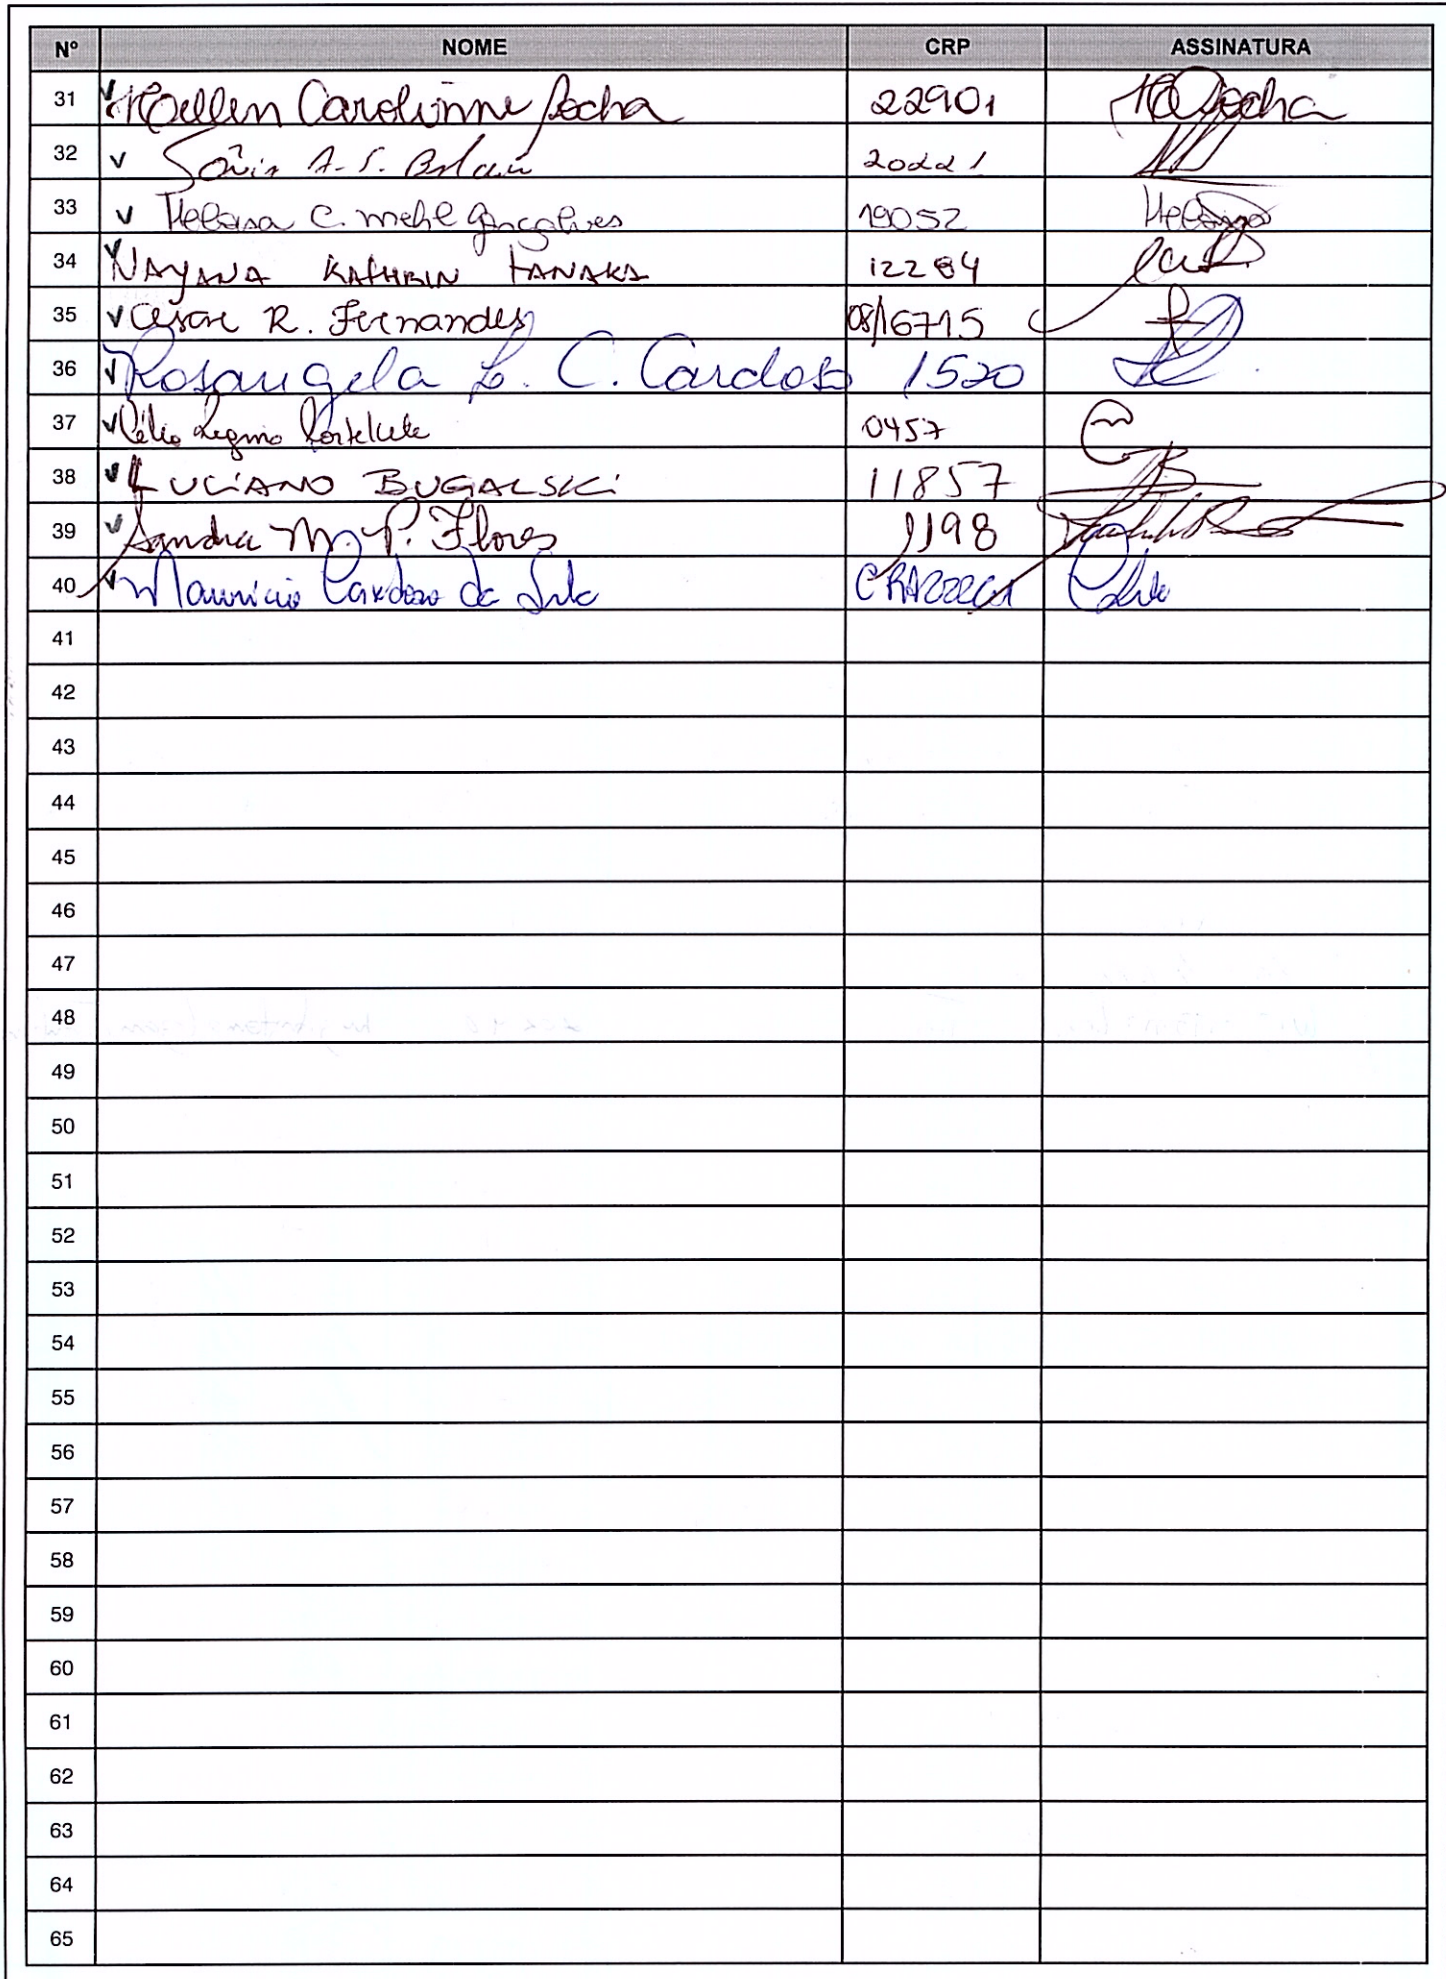 Nº NOME CRP ASSINATURA
31 Hellen Carolinne Rocha 22901 HCRocha
32 v Sônia A. S. 20221
33 v Heloisa C. Mehl Gonçalves 19052 Heloisa
34 v NAYANA KATHRIN TANAKA 12284
35 v Cesar R. Fernandes 08/16715
36 v Rosangela L. C. Cardoso 1520
37 v Célio 0457
38 v LUCIANO BUGALSKI 11857
39 v Sandra M. P. Flores 1198
40 v Mauricio Cardoso da Silva
41
42
43
44
45
46
47
48
49
50
51
52
53
54
55
56
57
58
59
60
61
62
63
64
65